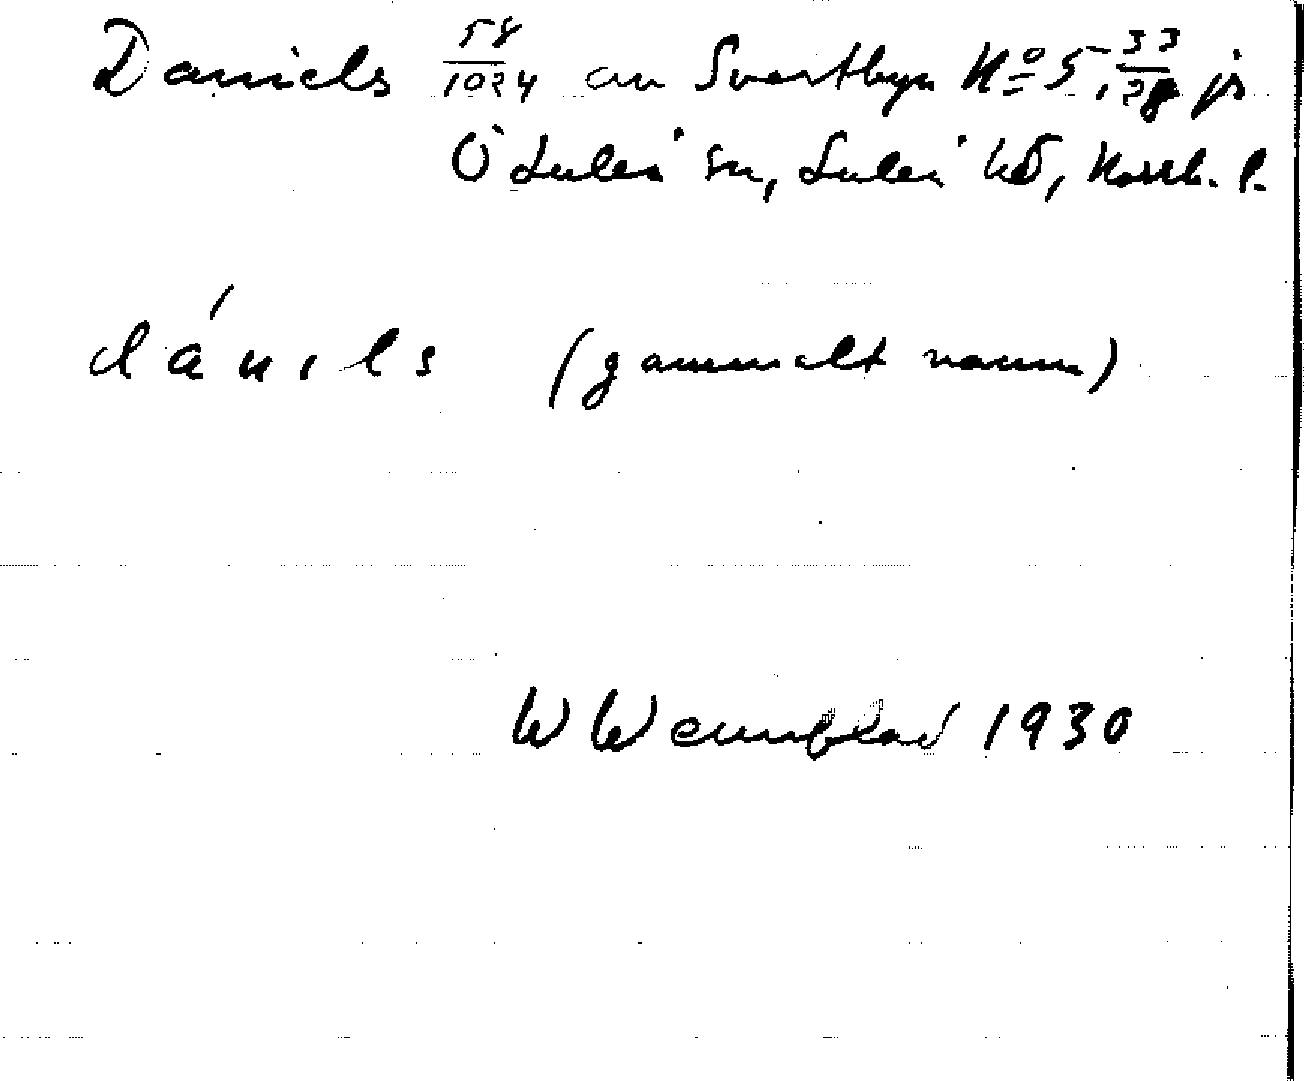 Daniels 58/1024 av Svartbyn Nº 5, 33/28 js
Ö Luleå sn, Luleå tg, Norrb. l.
dánıls (gammalt namn)
W Wennblad 1930